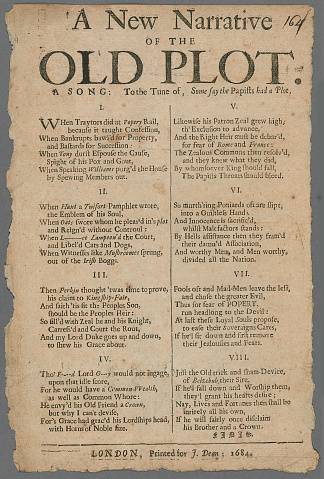 164
A New Narrative
OF THE
OLD PLOT.
A SONG: To the Tune of, Some say the Papists had a Plot,
I.
When Traytors did at Popery Rail,
because it taught Confession,
When Bankrupts bawl'd for Property,
and Bastards for Succession:
When Tony durst Espouse the Cause,
Spight of his Pox and Gout,
When Speaking Williams purg'd the House
by Spewing Members out.
II.
When Hunt a Twisfort Pamphlet wrote,
the Emblem of his Soul,
When Oats swore whom he pleas'd in's plot
and Reign'd without Controul:
the Court,
and Libel'd Cats and Dogs,
When Witnesses like Mushroomes sprung,
out of the Irish Boggs.
III.
Then Perkin thought 'twas time to prove,
his claim to Kingship-Fair,
And faith 'tis fit the Peoples Son,
should be the Peoples Heir:
So fill'd with Zeal he and his Knight,
Carress'd and Court the Rout,
And my Lord Duke goes up and down,
to shew his Grace about.
IV.
Tho' F---d Lord G--y would not ingage,
upon that idle score,
For he would have a Common-Wealth,
as well as Common Whore:
He envy'd his Old Friend a Crown,
but why I can't devise,
For's Grace had grac'd his Lordships head,
with Horns of Noble size.
V.
Likewise his Patron Zeal grew high,
th' Exclusion to advance,
And the Right Heir must be debar'd,
for fear of Rome and France:
The Zealous Commons then resolv'd,
and they knew what they did,
By whomsoever King should fall,
The Papists Throats should bleed.
VI.
So murth'ring Poniards oft are slipt,
into a Guiltless Hand,
And Innocence is sacrific'd,
whilst Malefactors stand:
By Hells assistance then they fram'd
their damn'd Association,
And worthy Men, and Men worthy,
divided all the Nation.
VII.
Fools oft and Mad-Men leave the less,
and chuse the greater Evil,
Thus for fear of POPERY,
run headlong to the Devil:
At last these Loyal Souls propose,
to ease their Soveraigns Cares,
If he'l sit down and first remove
their Jealousies and Fears.
VIII.
Just the Old trick and sham-Device,
of Belzebub their Sire,
If he'l fall down and Worship them,
they'l grant his hearts desire:
Nay, Lives and Fortunes then shall be
intirely all his own,
If he will fairly once disclaim
his Brother and a Crown.
FINIS.
LONDON, Printed for J. Dean; 1684.